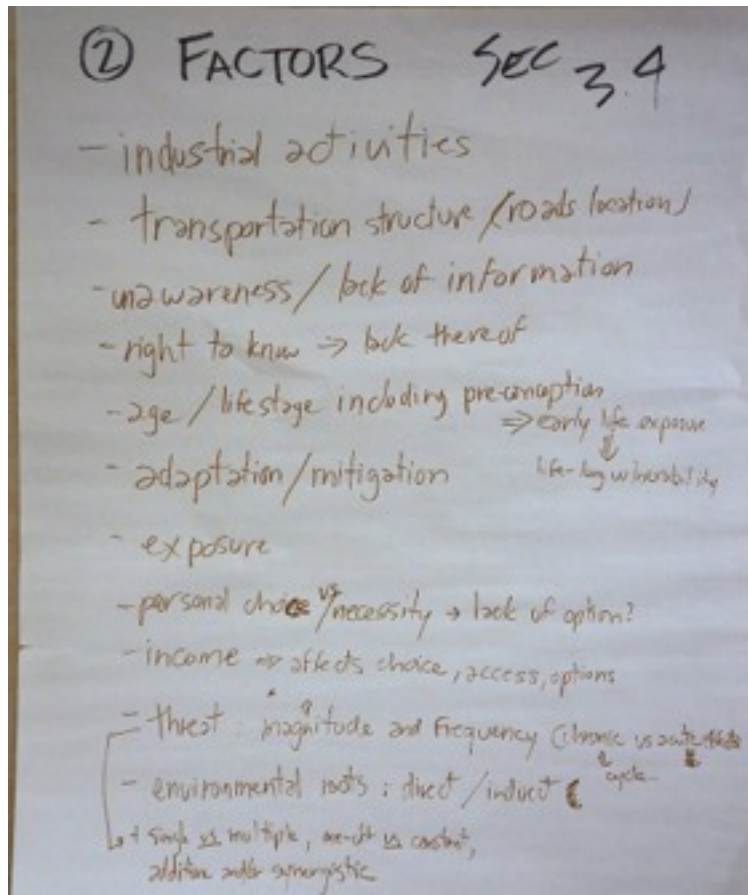 ② FACTORS SEC 3.4
- industrial activities
- transportation structure /(roads location)
- unawareness / lack of information
- right to know ⇒ lack thereof
- age / lifestage including pre-conception
⇒ early life exposure
⇓
life-long vulnerability
- adaptation/mitigation
- exposure
- personal choice vs/necessity → lack of option?
- income ⇒ affects choice, access, options
- threat : magnitude and frequency (chronic vs acute
cycle
- environmental roots : direct / indirect
+ single vs multiple, one-off vs constant,
additive and/or synergistic